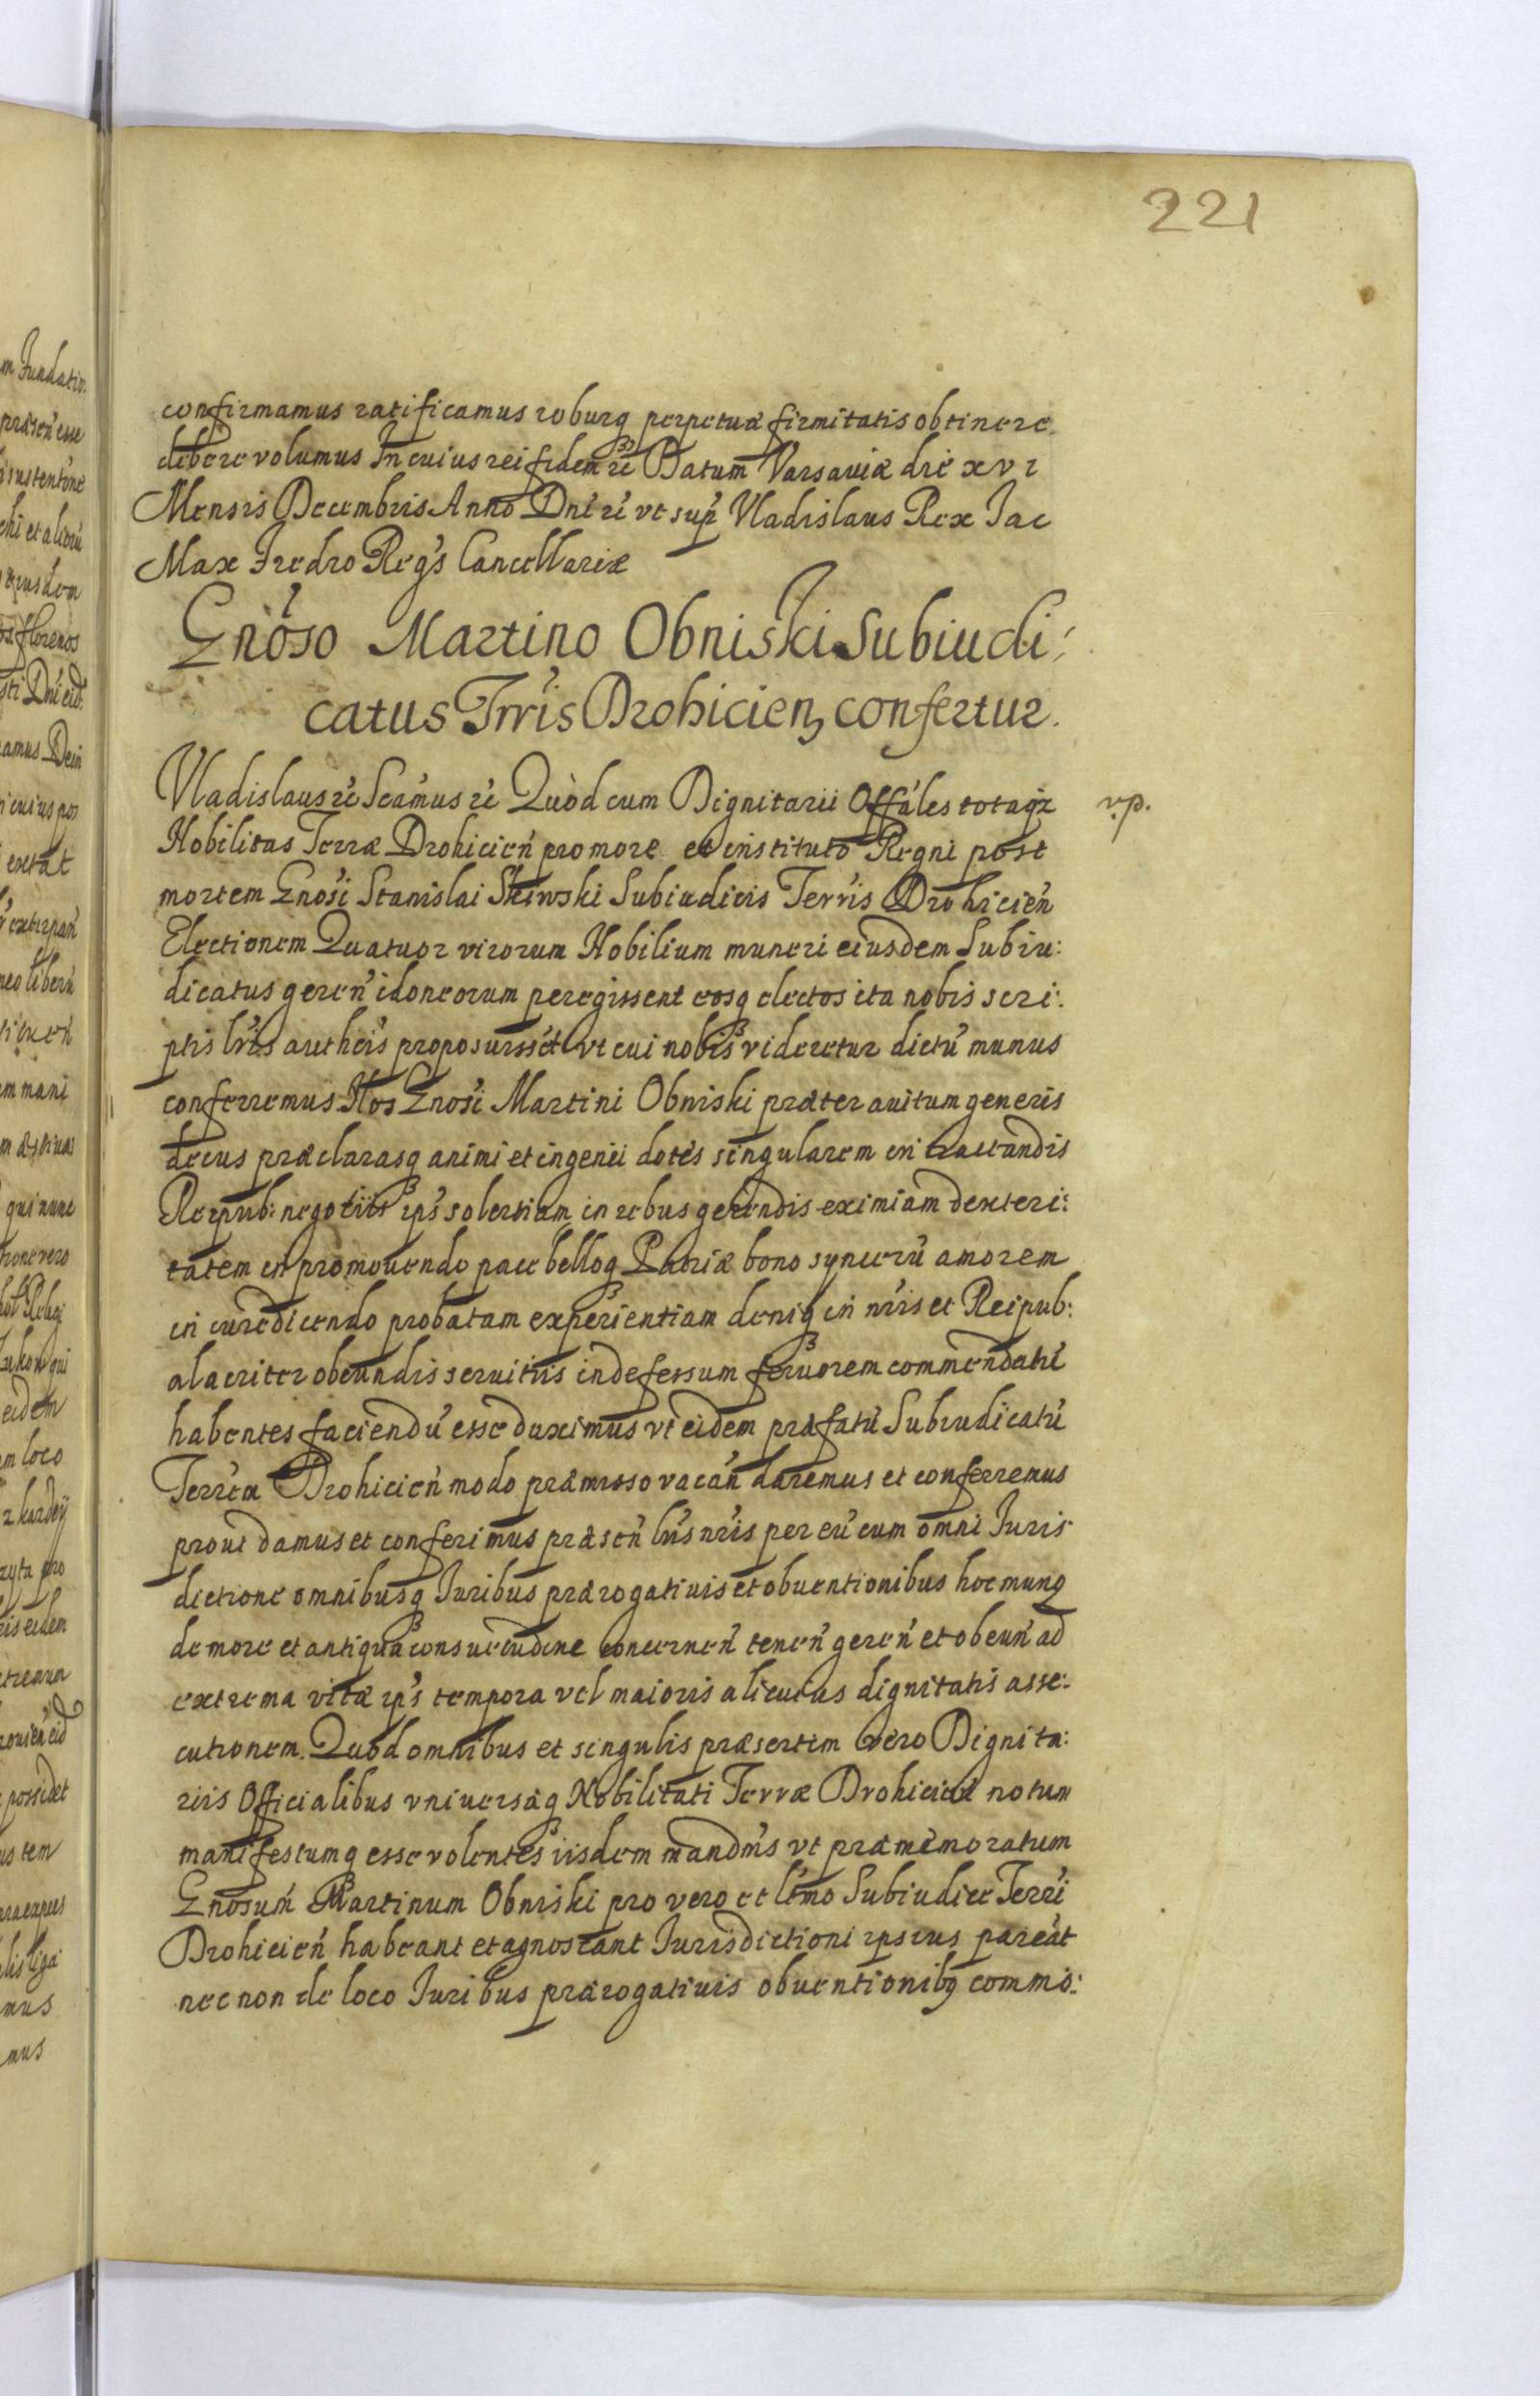 221
confirmamus ratificamus roburq perpetuæ firmitatis obtinere
debere volumus In cuius rei fidem rc Datum Varsaviæ die xvi
Mensis Decembris Anno Dni rc vt sup Vladislaus Rex Jac
Max Fredro Regs Cancellariæ
Gnoso Martino Obniski Subiudi:
catus Trris Drohicien confertur.
Vladislaus rc Scamus rc Quòd cum Dignitarii Offáles totaqz
v.p.
Nobilitas Terræ Drohicień pro more et instituto Regni post
mortem Gnosi Stanislai Skiwski Subiudicis Terris Drohicień
Electionem Quatuor virorum Nobilium muneri eiusdem Subiu:
dicatus gereń idoneorum peregissent eosq electos ita nobis scri:
ptis lris autheis proposuisset vt cui nobis videretur dictū munus
conferremus Nos Gnosi Martini Obniski præter auitum generis
decus præclarasq animi et ingenii dotes singularem in tractandis
Reipub: negotiis ips solertiam in rebus gerendis eximiam dexteri:
tatem in promouendo pace belloq Patriæ bono syncerū amorem
in iure dicendo probatam experientiam deniq in nris et Reipub:
alacriter obeundis seruitiis indefessum feruorem commendatū
habentes faciendū esse duximus vt eidem præfatū Subiudicatū
Terrem Drohicień modo præmisso vacań daremus et conferremus
prout damus et conferimus præseń lris nris per eū cum omni Juris
dictione omnibusq Juribus prærogatiuis et obuentionibus hoc munq
de more et antiqua consuetudine concerneń teneń gereń et obeuń ad
extrema vitæ ips tempora vel maioris alicuius dignitatis asse:
cutionem. Quod omnibus et singulis præsertim vero Dignita:
riis Officialibus vniuersæq Nobilitati Terræ Drohicień notum
manifestumq esse volentes iisdem mandms vt præmemoratum
Gnosum Martinum Obniski pro vero et ltmo Subiudice Terri
Drohicień habeant et agnoscant Jurisdictioni ipsius pareāt
nec non de loco Juribus prærogatiuis obuentionibq commo: